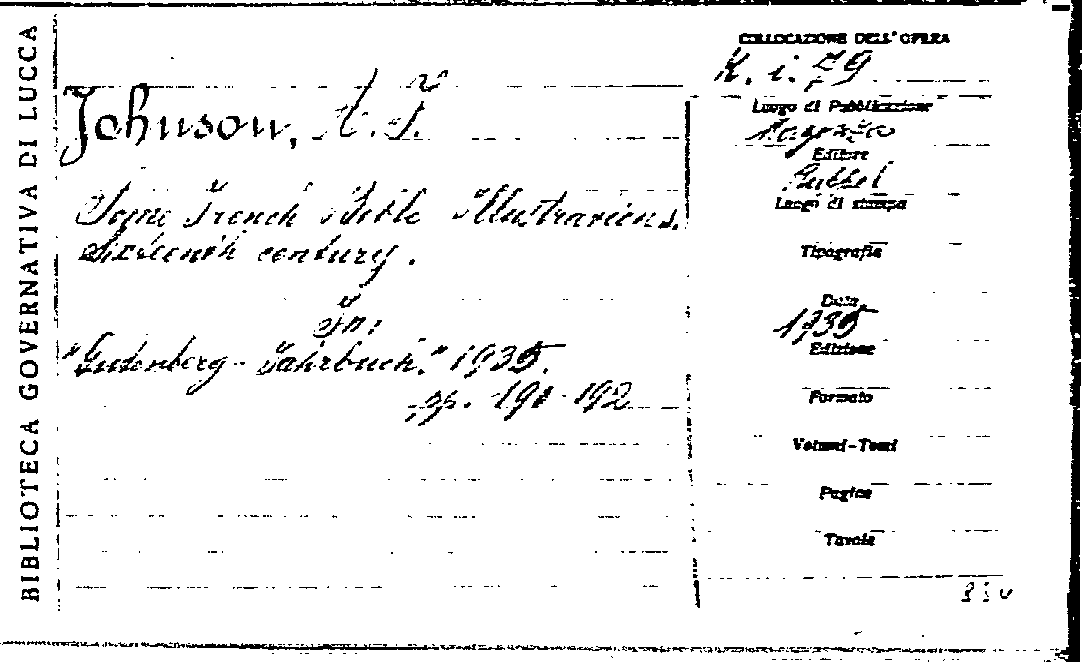 BIBLIOTECA GOVERNATIVA DI LUCCA
COLLOCAZIONE DELL'OPERA
K. i. 79
Johnson, A. F.
Some French Bible Illustrariens.
Sixteenth century.
In:
"Gutenberg-Jahrbuch." 1935.
pp. 190-192
Luogo di Pubblicazione
Editore
Luogo di stampa
Tipografia
Data
1935
Edizione
Formato
Volumi-Tomi
Pagine
Tavole